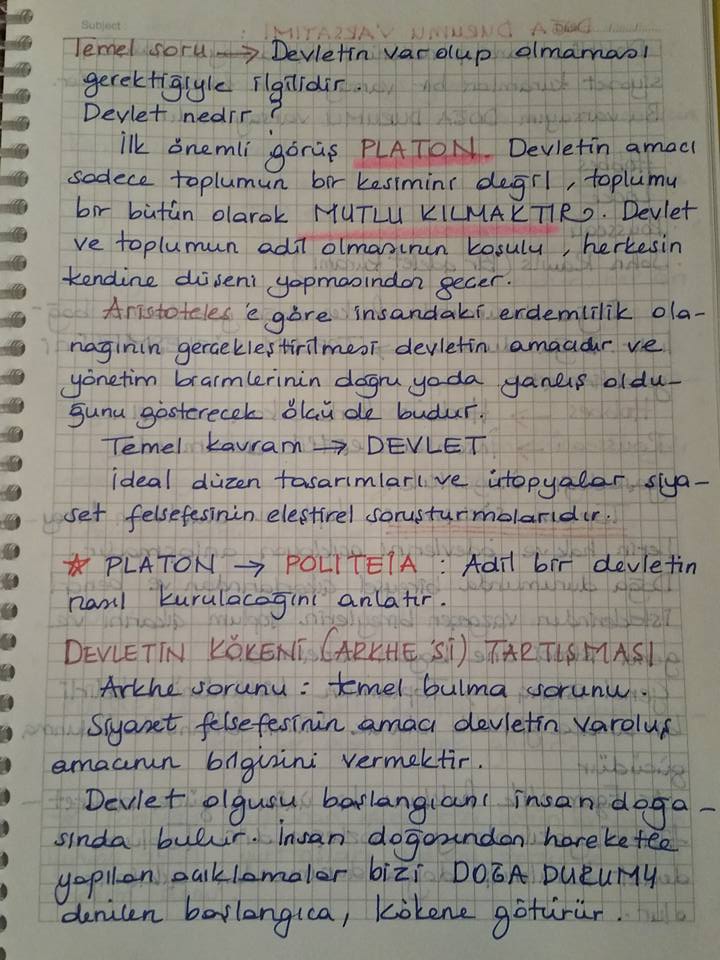 Subject
Temel soru → Devletin varolup olmaması
gerektiğiyle ilgilidir.
Devlet nedir?
İlk önemli görüş PLATON. Devletin amacı
sadece toplumun bir kesimini değil, toplumu
bir bütün olarak MUTLU KILMAKTIR. Devlet
ve toplumun adil olmasının koşulu, herkesin
kendine düşeni yapmasından geçer.
Aristoteles'e göre insandaki erdemlilik ola-
nağının gerçekleştirilmesi devletin amacıdır ve
yönetim biçimlerinin doğru yada yanlış oldu-
ğunu gösterecek ölçü de budur.
Temel kavram → DEVLET
İdeal düzen tasarımları ve ütopyalar siya-
set felsefesinin eleştirel soruşturmalarıdır.
★ PLATON → POLITEİA : Adil bir devletin
nasıl kurulacağını anlatır.
DEVLETİN KÖKENİ (ARKHE'Sİ) TARTIŞMASI
Arkhe sorunu : temel bulma sorunu.
Siyaset felsefesinin amacı devletin varoluş
amacının bilgisini vermektir.
Devlet olgusu başlangıcını insan doğa-
sında bulur. İnsan doğasından hareketle
yapılan açıklamalar bizi DOĞA DURUMU
denilen başlangıca, kökene götürür.